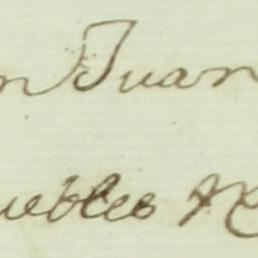 n Juan
uebles